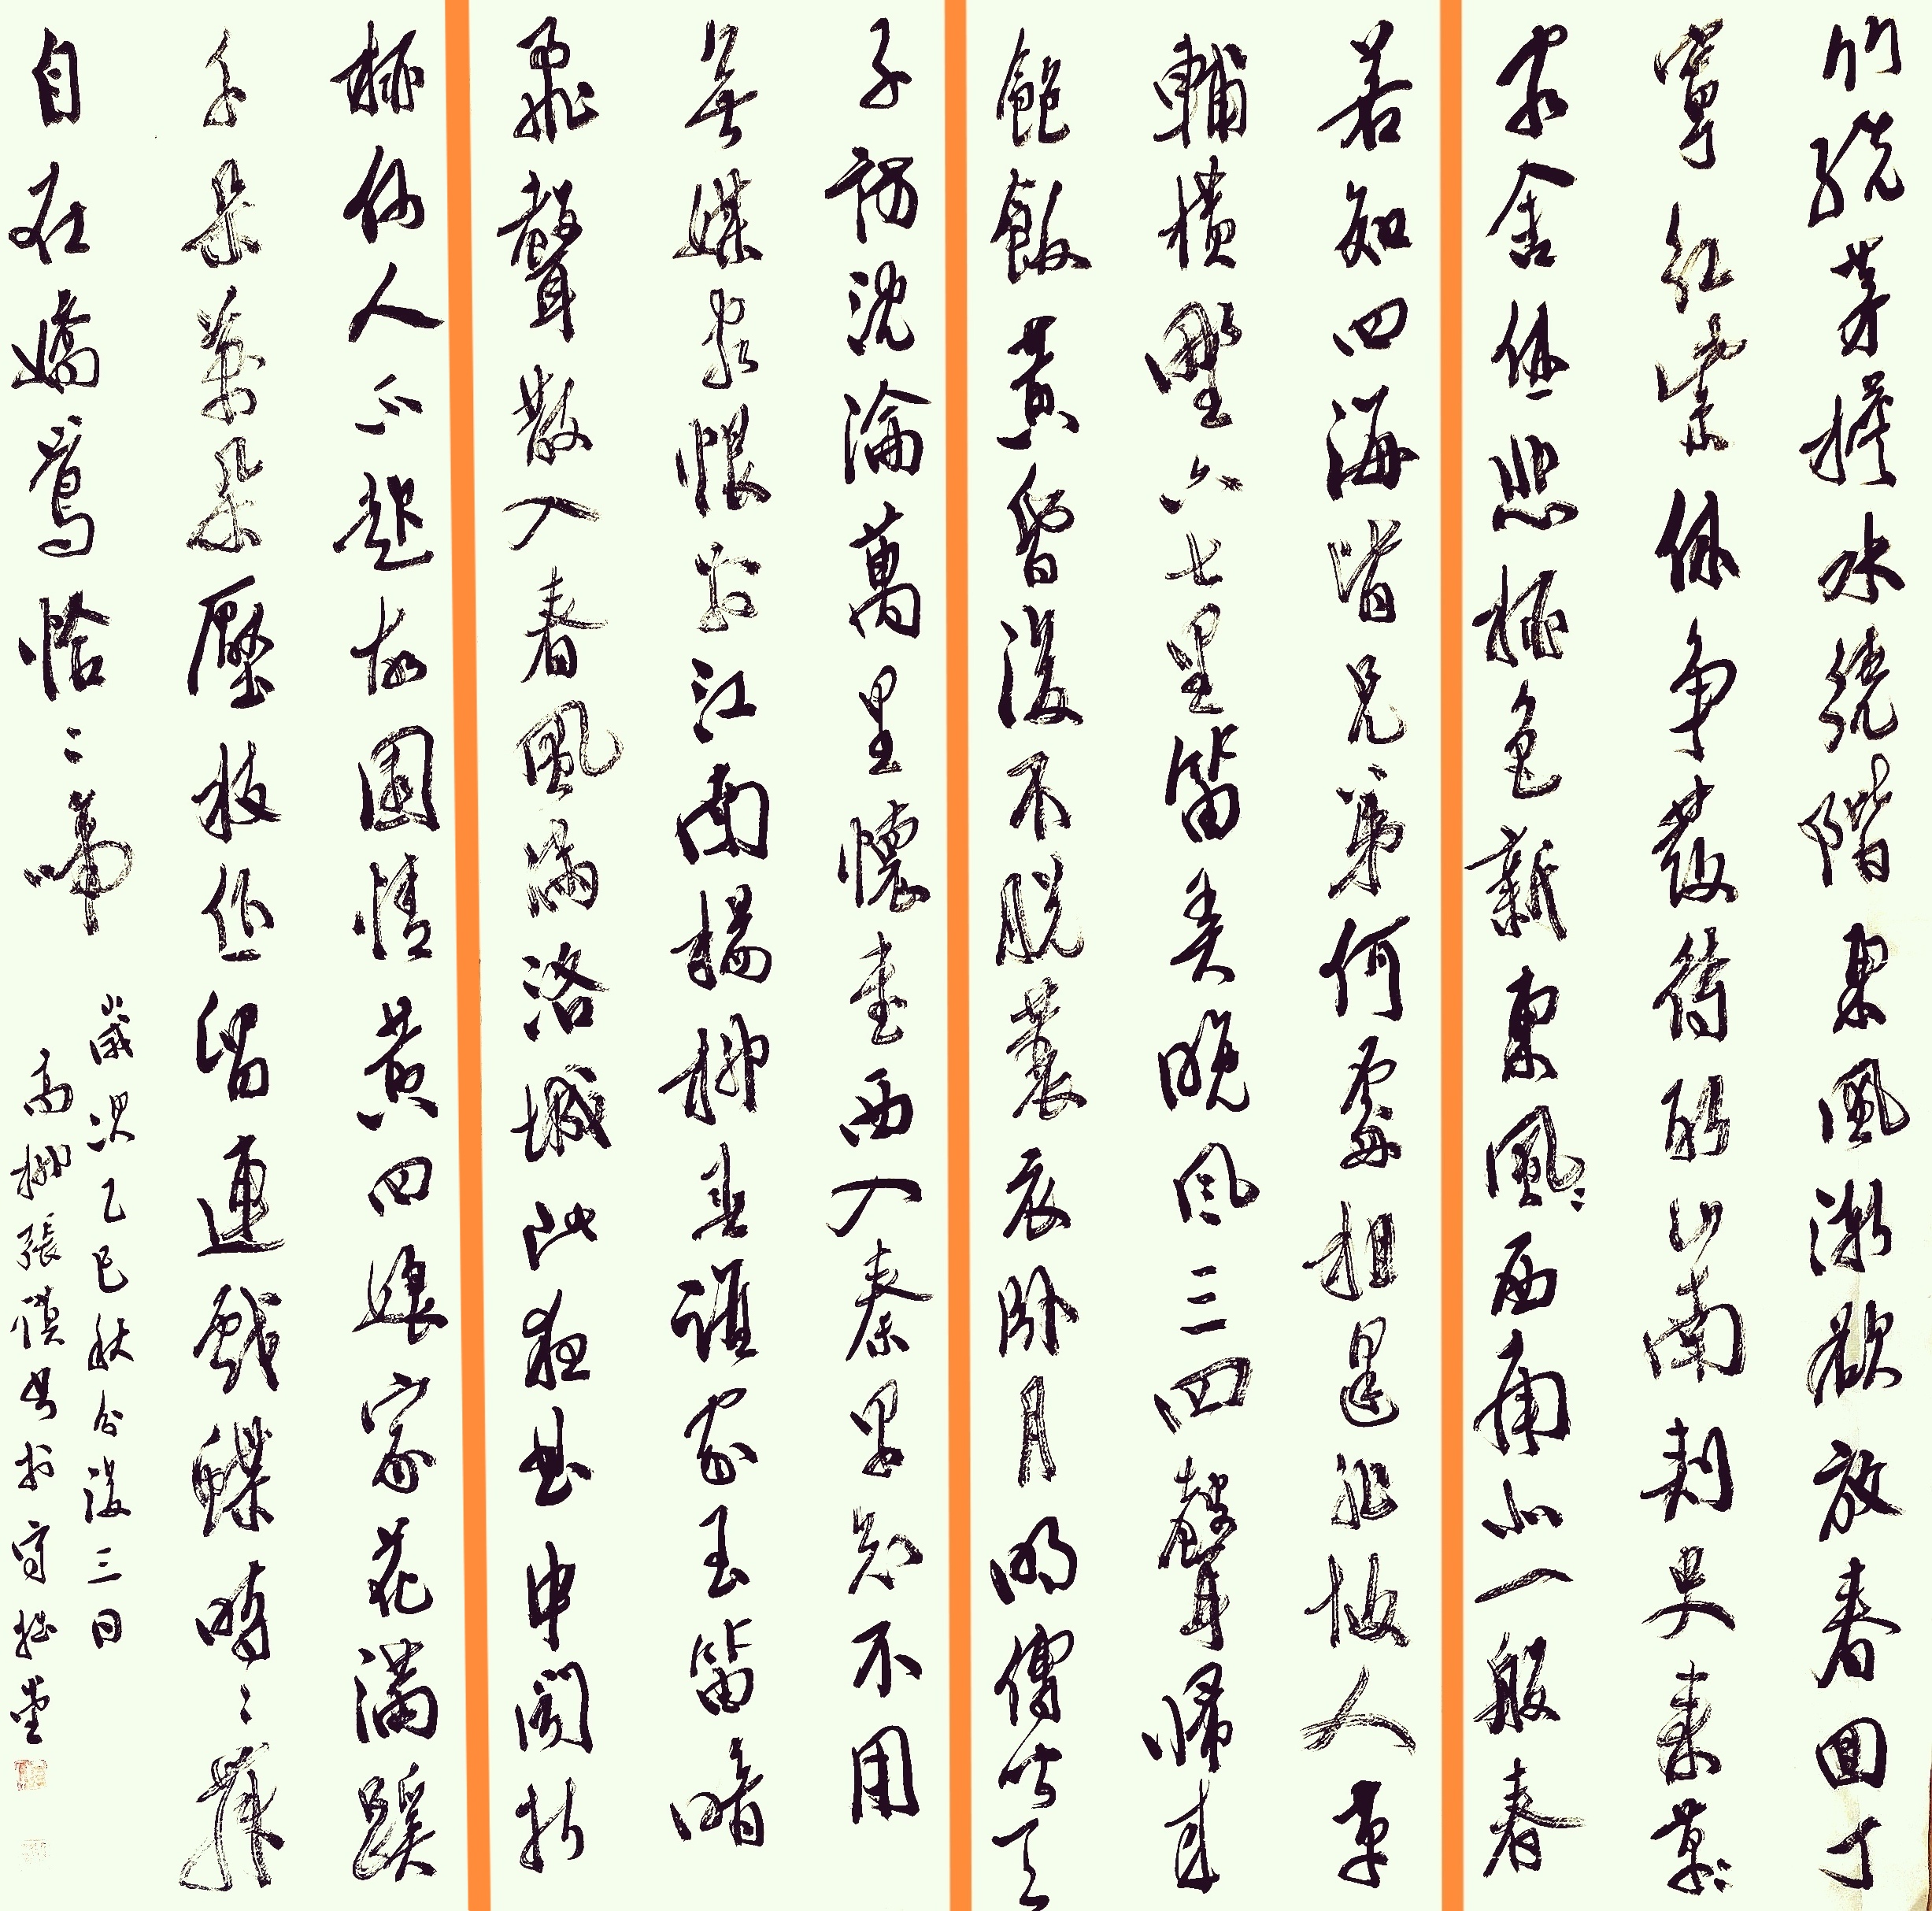 竹繞茅檐水繞階東風漸欲放春回丁
寧紅紫休爭發待山南刺史來草
客舍休悲柳色新東風西南北一般春
若知四海皆兄弟何處相逢非故人草
輔橫野六七里笛弄晚風三四聲歸來
飽飯黃昏後不脫蓑衣臥月明傳聞天
子訪沈淪萬里懷書西入秦早知不用
無媒客恨別江南楊柳春誰家玉笛暗
飛聲散入春風滿洛城此夜曲中聞折
柳何人不起故園情黃四娘家花滿蹊
千朵萬朵壓枝低留連戲蝶時〻舞
自在嬌鶯恰〻啼
歲次乙巳秋分後三日
高柳張於守拙堂